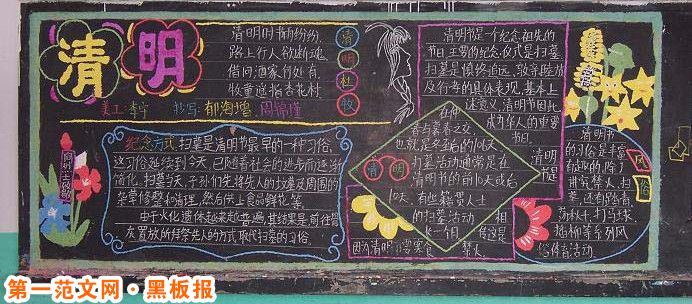 清明
清明时节雨纷纷,
路上行人欲断魂。
借问酒家何处有,
牧童遥指杏花村。
清明
杜牧
美工:李宁 抄写:郁海增、周锦瑾
纪念方式 扫墓是清明节最早的一种习俗,
这习俗延续到今天,已随着社会的进步而逐渐
简化。扫墓当天,子孙们先将先人的坟墓及周围的
杂草修整和清理,然后供上食品鲜花等。
由于火化遗体越来越普遍,其结果是前往骨
灰置放所拜祭先人的方式取代扫墓的习俗。
清明节是一个纪念祖先的
节日,主要的纪念仪式是扫墓,
扫墓是慎终追远、敦亲睦族
及行孝的具体表现,基本上
述意义,清明节因此
成为华人的重要
节日。
清明
在仲
春与暮春之交,
也就是冬至后的106天。
扫墓活动通常是在
清明节的前10天或后
10天。有些籍贯人士
的扫墓活动
长一个月。
清明
是
相
传这是
因为清明节要寒食
禁火,
风俗
清明节
的习俗是丰富
有趣的,除了
讲究禁火、扫
墓,还有踏青、
荡秋千、打马球、
插柳等系列风
俗体育活动。
第一范文网·黑板报